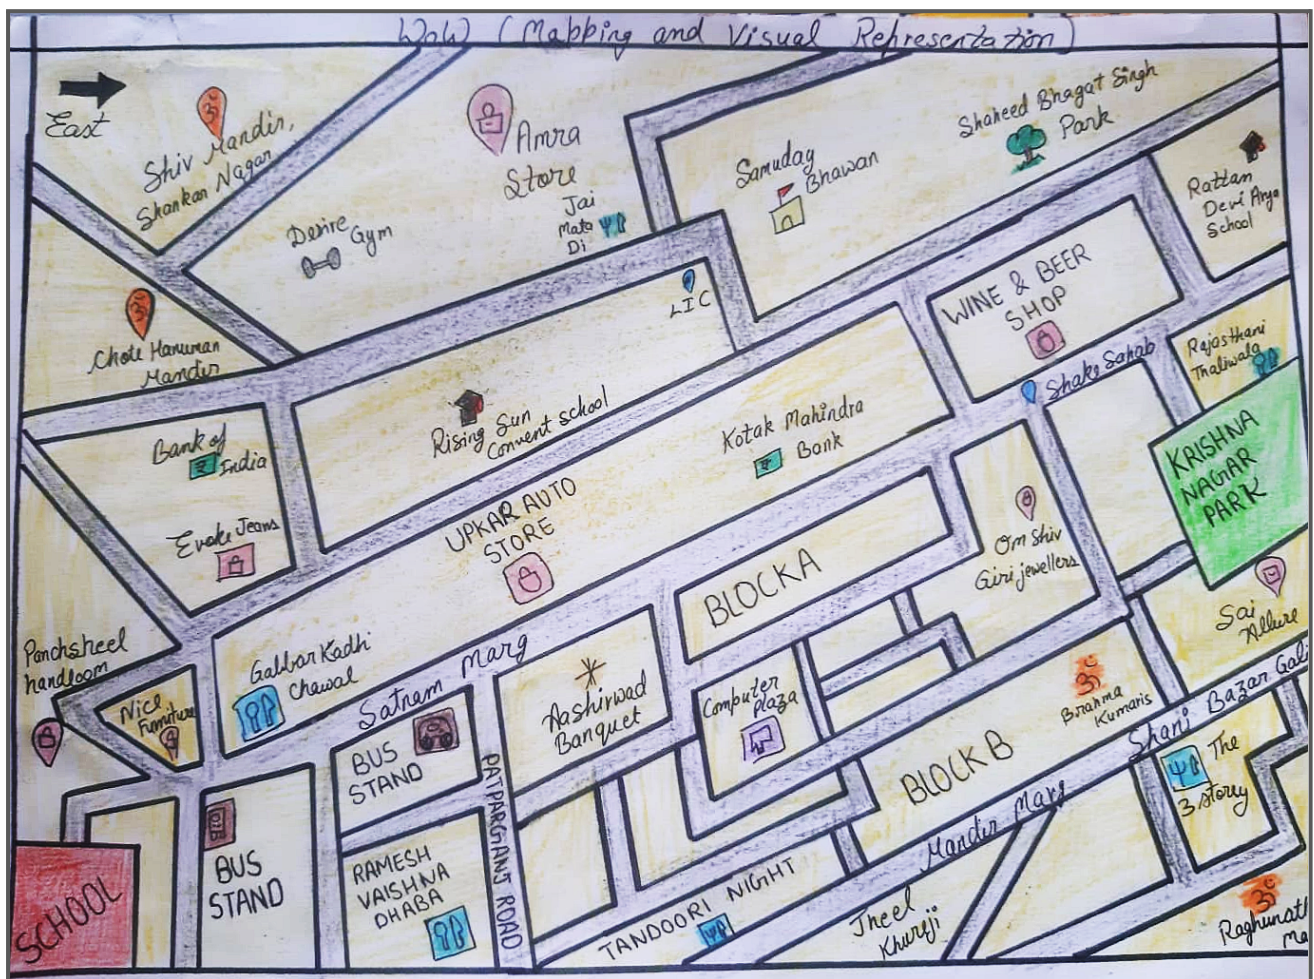 WoW (Mapping and Visual Representation)
East
Shiv Mandir,
Shankar Nagar
Amra
Store
Shaheed Bhagat Singh
Park
Samuday
Bhawan
Rattan
Devi Arya
School
Desire
Gym
Jai
Mata
Di
LIC
WINE & BEER
SHOP
Chote Hanuman
Mandir
Rajasthani
Thaliwala
Shake Sahab
Rising Sun
Convent school
Kotak Mahindra
Bank
Bank of
India
KRISHNA
NAGAR
PARK
Evoke Jeans
UPKAR AUTO
STORE
Om Shiv
Giri jewellers
BLOCK A
Sai
Allure
Panchsheel
handloom
Gabbar Kadhi
Chawal
Satnam Marg
Nice
Furniture
Aashirwad
Banquet
Computer
plaza
Brahma
Kumaris
Shani Bazar Gali
BUS
STAND
PATPARGANJ ROAD
BLOCK B
The
3 storey
Mandir Marg
SCHOOL
BUS
STAND
RAMESH
VAISHNA
DHABA
TANDOORI NIGHT
Jheel
Khuriji
Raghunath
Ma